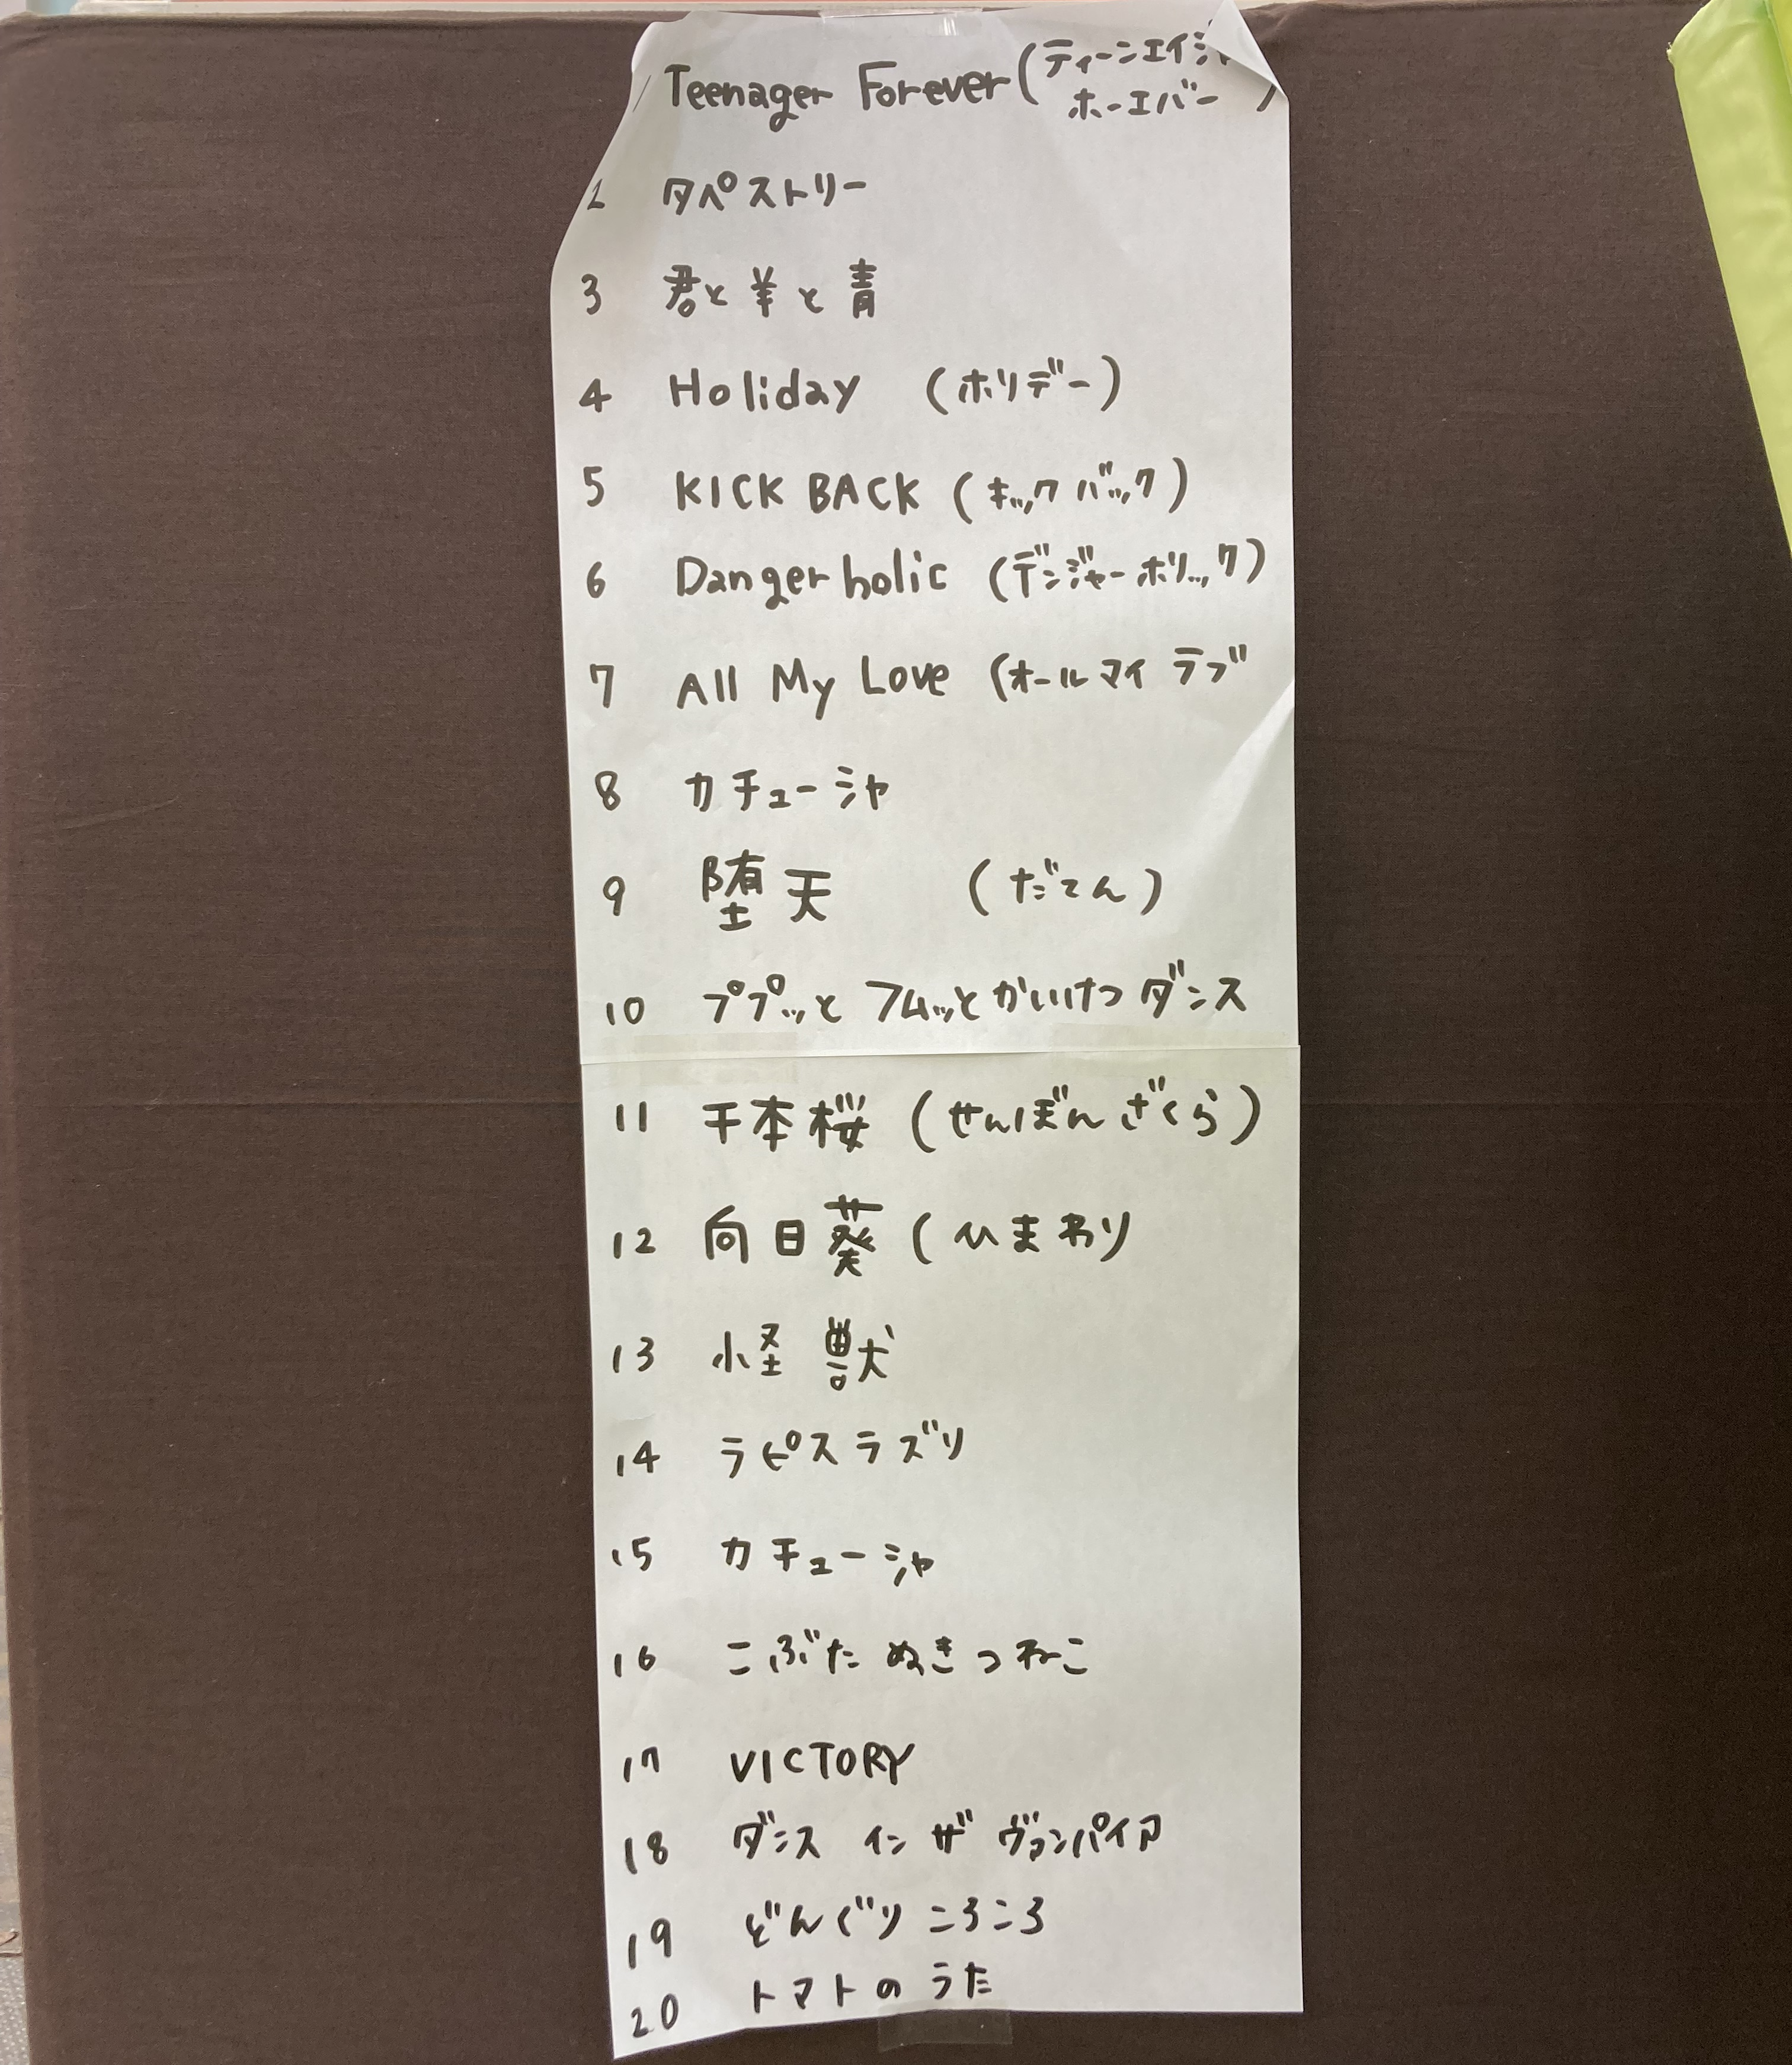 1 Teenager Forever (ティーンエイジャ
ホーエバー )
2 タペストリー
3 君と羊と青
4 Holiday (ホリデー)
5 KICK BACK (キックバック)
6 Danger holic (デンジャーホリック)
7 All My Love (オールマイ ラブ
8 カチューシャ
9 堕天 (だてん)
10 ププッと フムッとかいけつ ダンス
11 千本桜 (せんぼんざくら)
12 向日葵 (ひまわり
13 怪獣
14 ラピスラズリ
15 カチューシャ
16 こぶたぬきつねこ
17 VICTORY
18 ダンス イン ザ ヴァンパイア
19 どんぐりころころ
20 トマトのうた